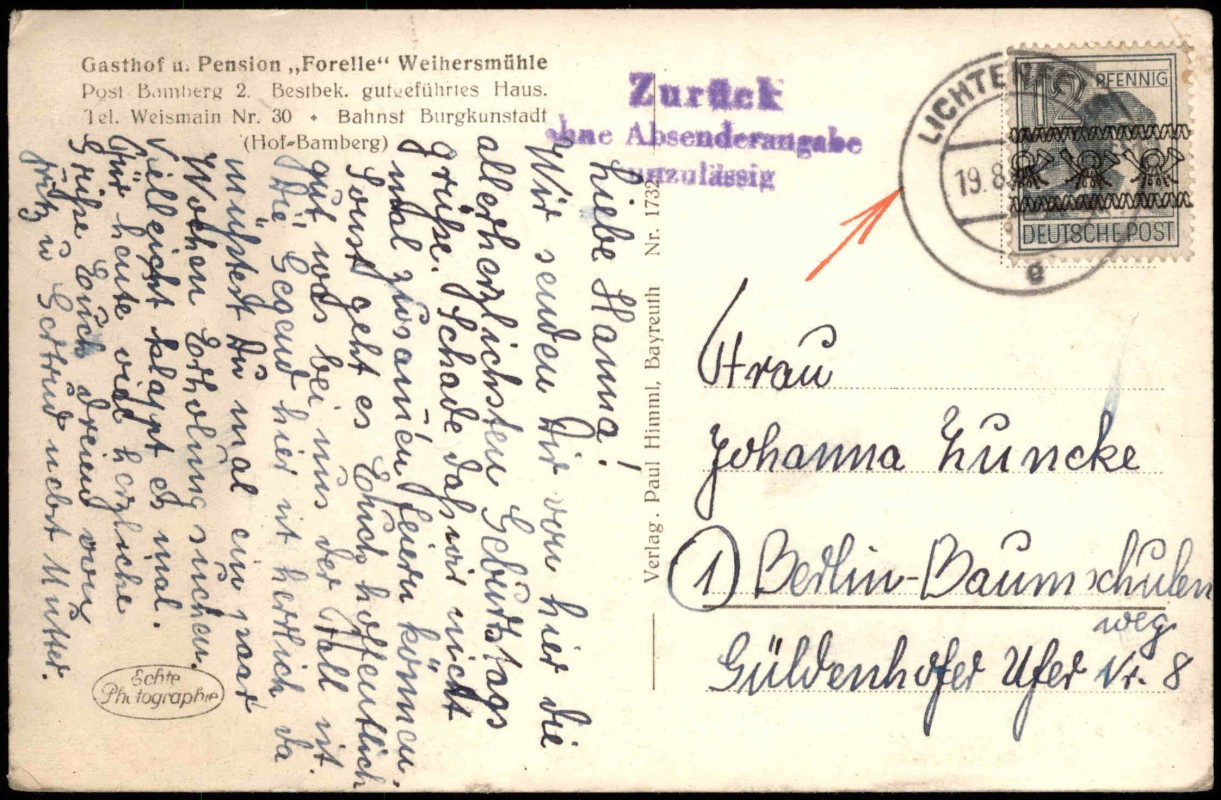 Gasthof u. Pension „Forelle“ Weihersmühle
Post Bamberg 2. Bestbek. gutgeführtes Haus.
Tel. Weismain Nr. 30 • Bahnst Burgkunstadt
(Hof-Bamberg)
Zurück
ohne Absenderangabe
unzulässig
LICHTENF
19.8.
e
12 PFENNIG
DEUTSCHE POST
Liebe Hanna!
Wir senden Dir von hier die
allerherzlichsten Geburtstags
grüße. Schade daß wir nicht
mal zusamen feiern können.
Sonst geht es Euch hoffentlich
gut was bei uns der Fall ist.
Die Gegend hier ist herrlich da
müßtest Du mal ein paar
Wochen Erholung suchen.
Vielleicht klappt es mal.
Für heute viel herzliche
Grüße Euch dreien von
Fritz u Gertrud nebst Mutter.
Echte
Photographie
Verlag. Paul Himml, Bayreuth Nr. 1732
Frau
Johanna Zuncke
1) Berlin-Baumschulen
weg
Güldenhofer Ufer Nr. 8